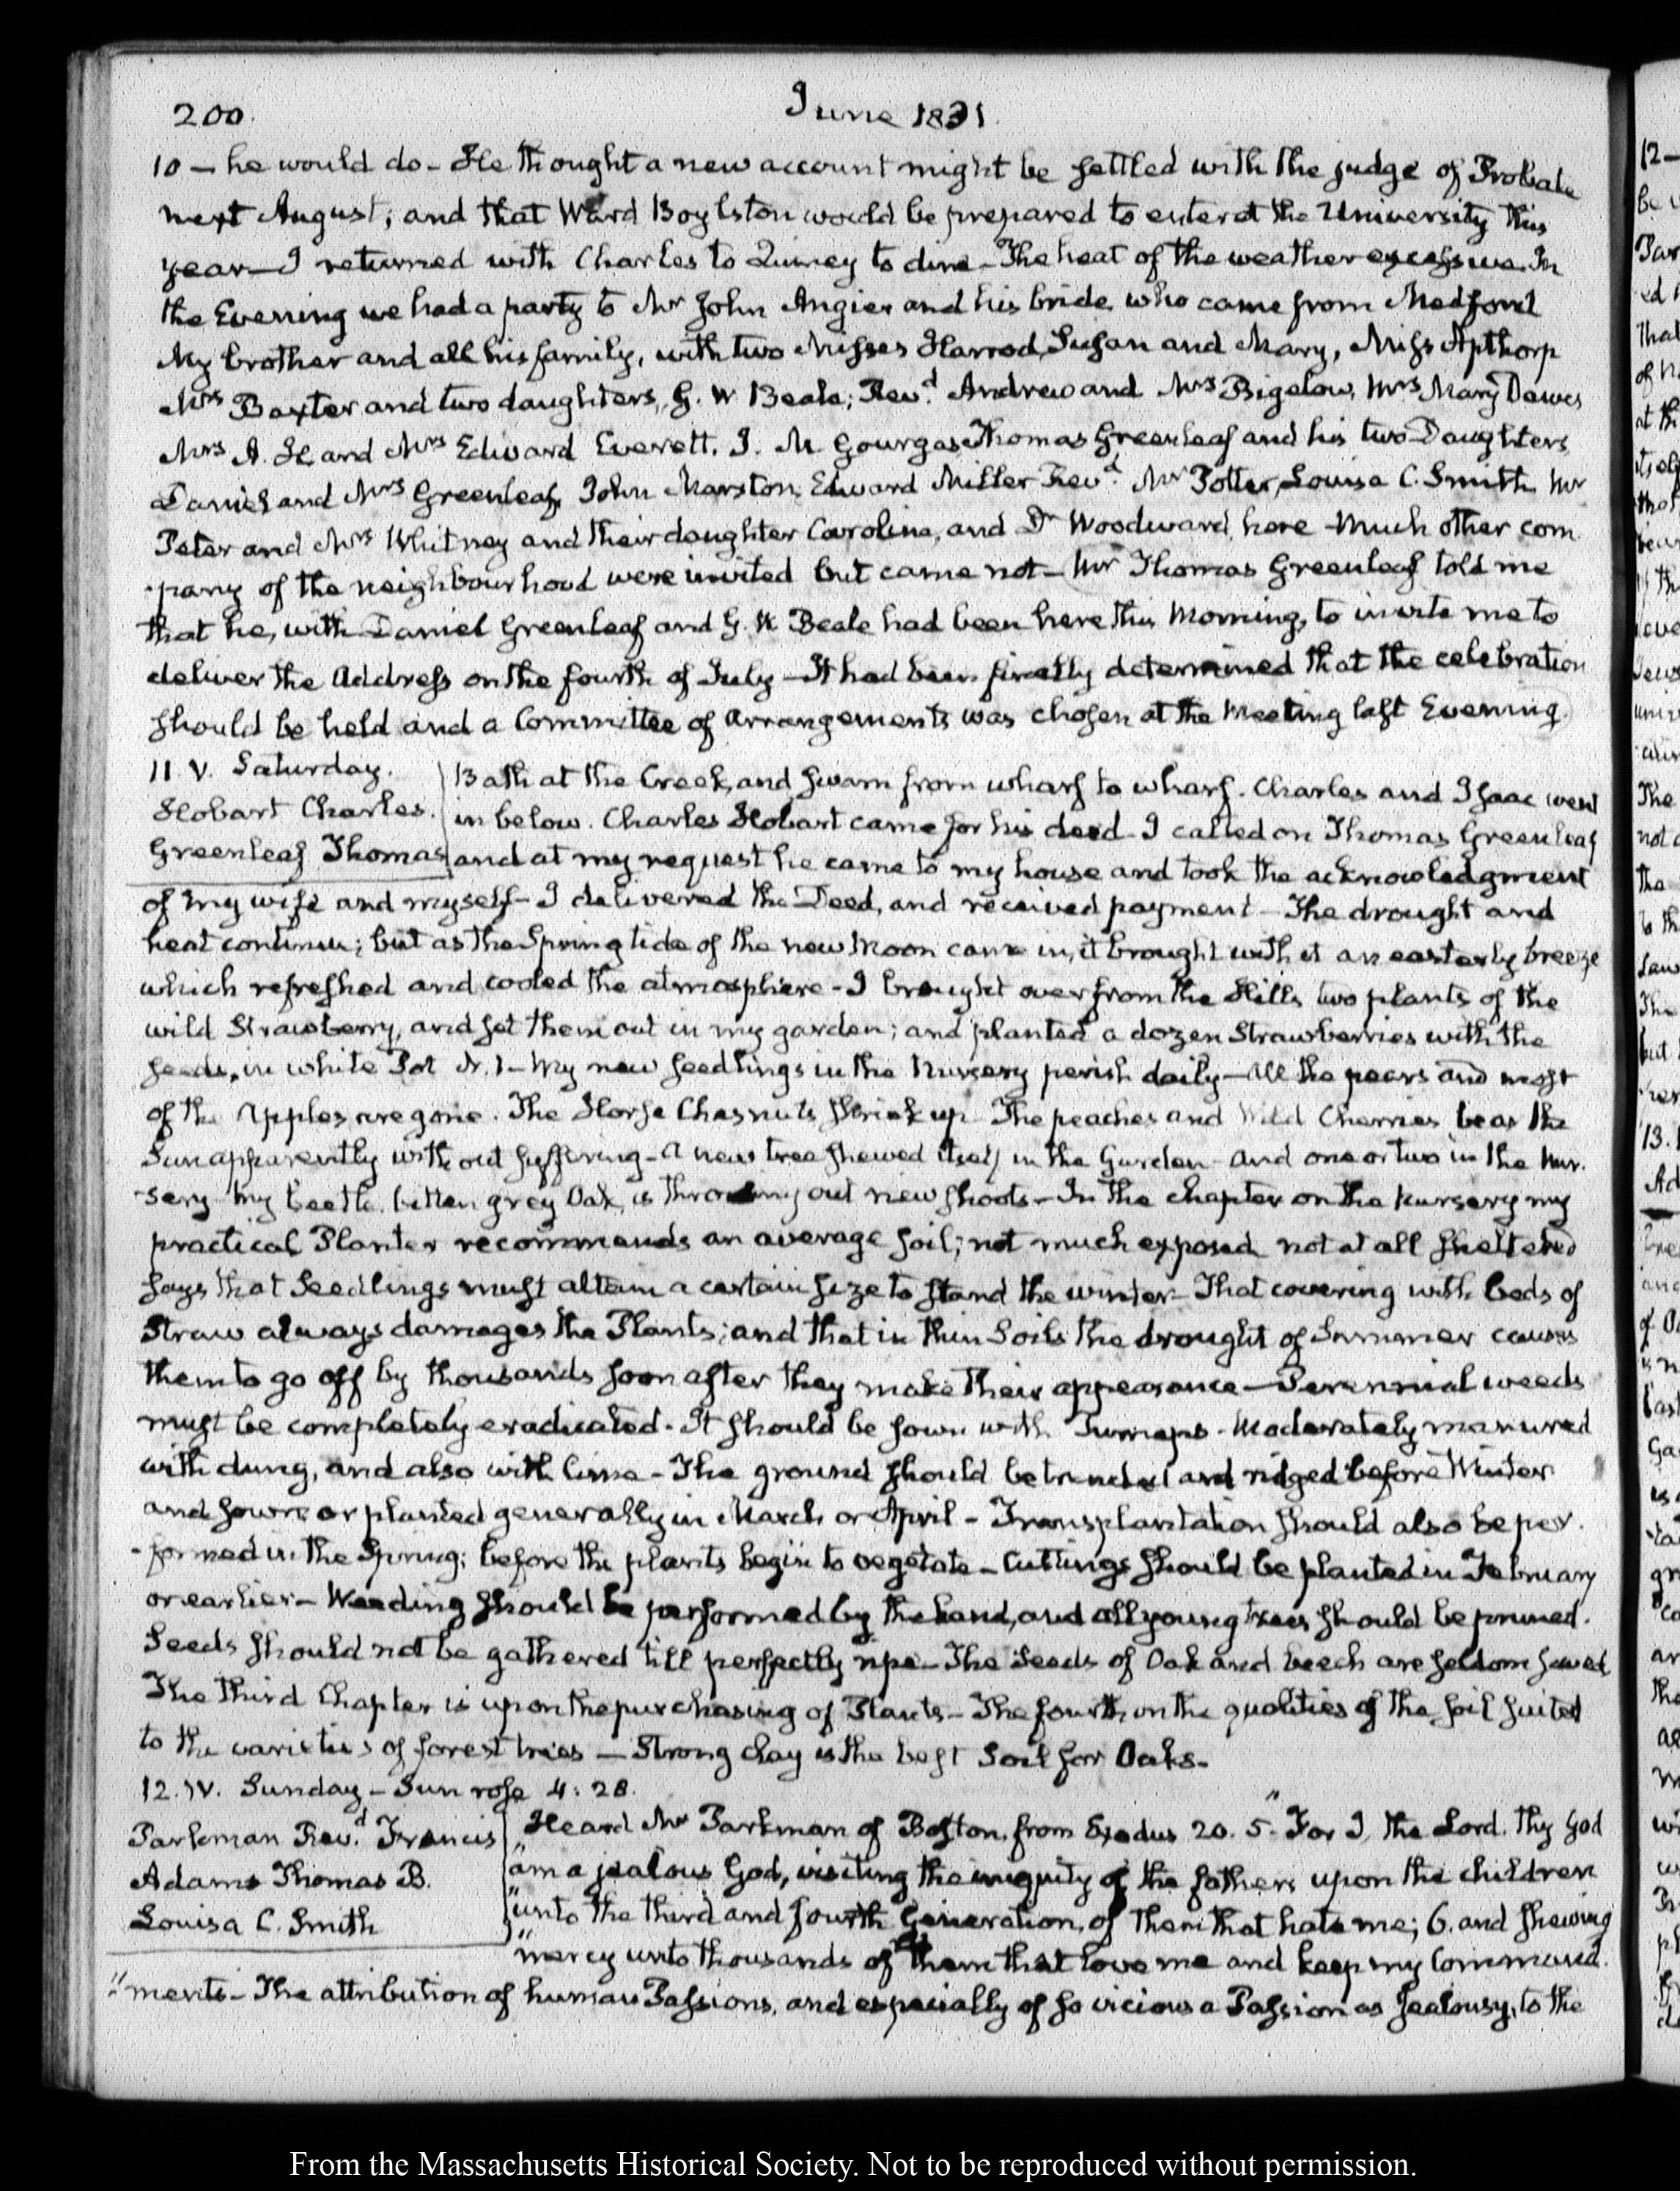 200.
June 1831.
10 — he would do — He thought a new account might be settled with the judge of Probate
next August; and that Ward Boylston would be prepared to enter at the University this
year — I returned with Charles to Quincy to dine — The heat of the weather excessive. In
the Evening we had a party to Mr John Angier and his bride who came from Medford
My brother and all his family, with two Misses Harrod, Susan and Mary, Miss Apthorp
Mrs Baxter and two daughters, G. W. Beale; Revd. Andrew and Mrs Bigelow, Mrs Mary Dawes
Mrs A. H. and Mrs Edward Everett. J. M. Gourgas Thomas Greenleaf and his two Daughters
Daniel and Mrs Greenleaf, John Marston, Edward Miller Revd. Mr Potter, Louisa C. Smith Mr
Peter and Mrs Whitney and their daughter Caroline, and Dr Woodward, here — Much other com
-pany of the neighbourhood were invited but came not — Mr Thomas Greenleaf told me
that he, with Daniel Greenleaf and G. W. Beale had been here this Morning, to invite me to
deliver the Address on the fourth of July — It had been finally determined that the celebration
should be held and a Committee of Arrangements was chosen at the Meeting last Evening.
11. V. Saturday.
Hobart Charles.
Greenleaf Thomas
Bath at the Creek, and swam from wharf to wharf. Charles and Isaac went
in below. Charles Hobart came for his deed — I called on Thomas Greenleaf
and at my request he came to my house and took the acknowledgment
of my wife and myself — I delivered the Deed, and received payment — The drought and
heat continue; but as the Spring tide of the new Moon came in, it brought with it an easterly breeze
which refreshed and cooled the atmosphere — I brought over from the Hills two plants of the
wild Strawberry, and set them out in my garden; and planted a dozen Strawberries with the
seeds, in white Pot N. 1 — My new seedlings in the Nursery perish daily — All the pears and most
of the Apples are gone. The Horse Chesnuts shrink up — The peaches and Wild Cherries bear the
Sun apparently without suffering — A new tree shewed itself in the Garden — and one or two in the Nur.
-sery — My beetle-bitten grey Oak, is throwing out new shoots — In the chapter on the Nursery my
practical Planter recommends an average soil; not much exposed not at all sheltered
says that Seedlings must attain a certain size to stand the winter — That covering with beds of
Straw always damages the Plants; and that in thin Soils the drought of Summer causes
them to go off by thousands soon after they make their appearance — Perennial weeds
must be completely eradicated. It should be sown with Turnips — Moderately manured
with dung, and also with lime — The ground should be trenched and ridged before Winter
and sown or planted generally in March or April — Transplantation should also be per.
-formed in the Spring; before the plants begin to vegetate — Cuttings should be planted in February
or earlier — Weeding should be performed by the hand, and all young trees should be pruned.
Seeds should not be gathered till perfectly ripe — The Seeds of Oak and beech are seldom saved
The third Chapter is upon the purchasing of Plants — The fourth, on the qualities of the soil suited
to the varieties of forest trees — Strong clay is the best Soil for Oaks —
12. IV. Sunday — Sun rose 4:28.
Parkman Revd. Francis
Adams Thomas B.
Louisa C. Smith
Heard Mr Parkman of Boston, from Exodus 20. 5. "For I, the Lord. thy God
"am a jealous God, visiting the iniquity of the fathers upon the children
"unto the third and fourth Generation, of them that hate me; 6. and shewing
"mercy unto thousands of them that love me and keep my Command.
"ments — The attribution of human Passions, and especially of so vicious a Passion as Jealousy, to the
From the Massachusetts Historical Society. Not to be reproduced without permission.